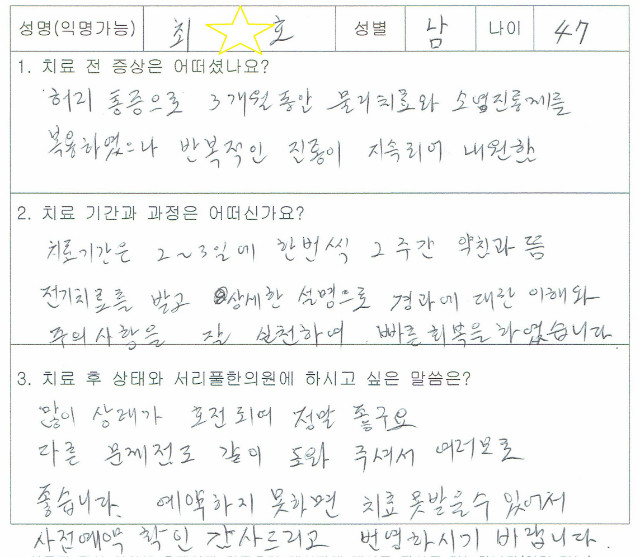 성명(익명가능) 최 호 성별 남 나이 47
1. 치료 전 증상은 어떠셨나요?
허리 통증으로 3개월동안 물리치료와 소염진통제를
복용하였으나 반복적인 진통이 지속되어 내원한
2. 치료 기간과 과정은 어떠신가요?
치료기간은 2~3일에 한번씩 2주간 약침과 뜸
전기치료를 받고 상세한 설명으로 경과에 대한 이해와
주의사항을 잘 실천하여 빠른회복을 하였습니다.
3. 치료 후 상태와 서리풀한의원에 하시고 싶은 말씀은?
많이 상태가 호전되며 정말 좋구요
다른 문제점도 같이 도와 주셔서 여러모로
좋습니다. 예약하지 못하면 치료 못받을수 있어서
사전예약 확인 감사드리고 번영하시기 바랍니다.